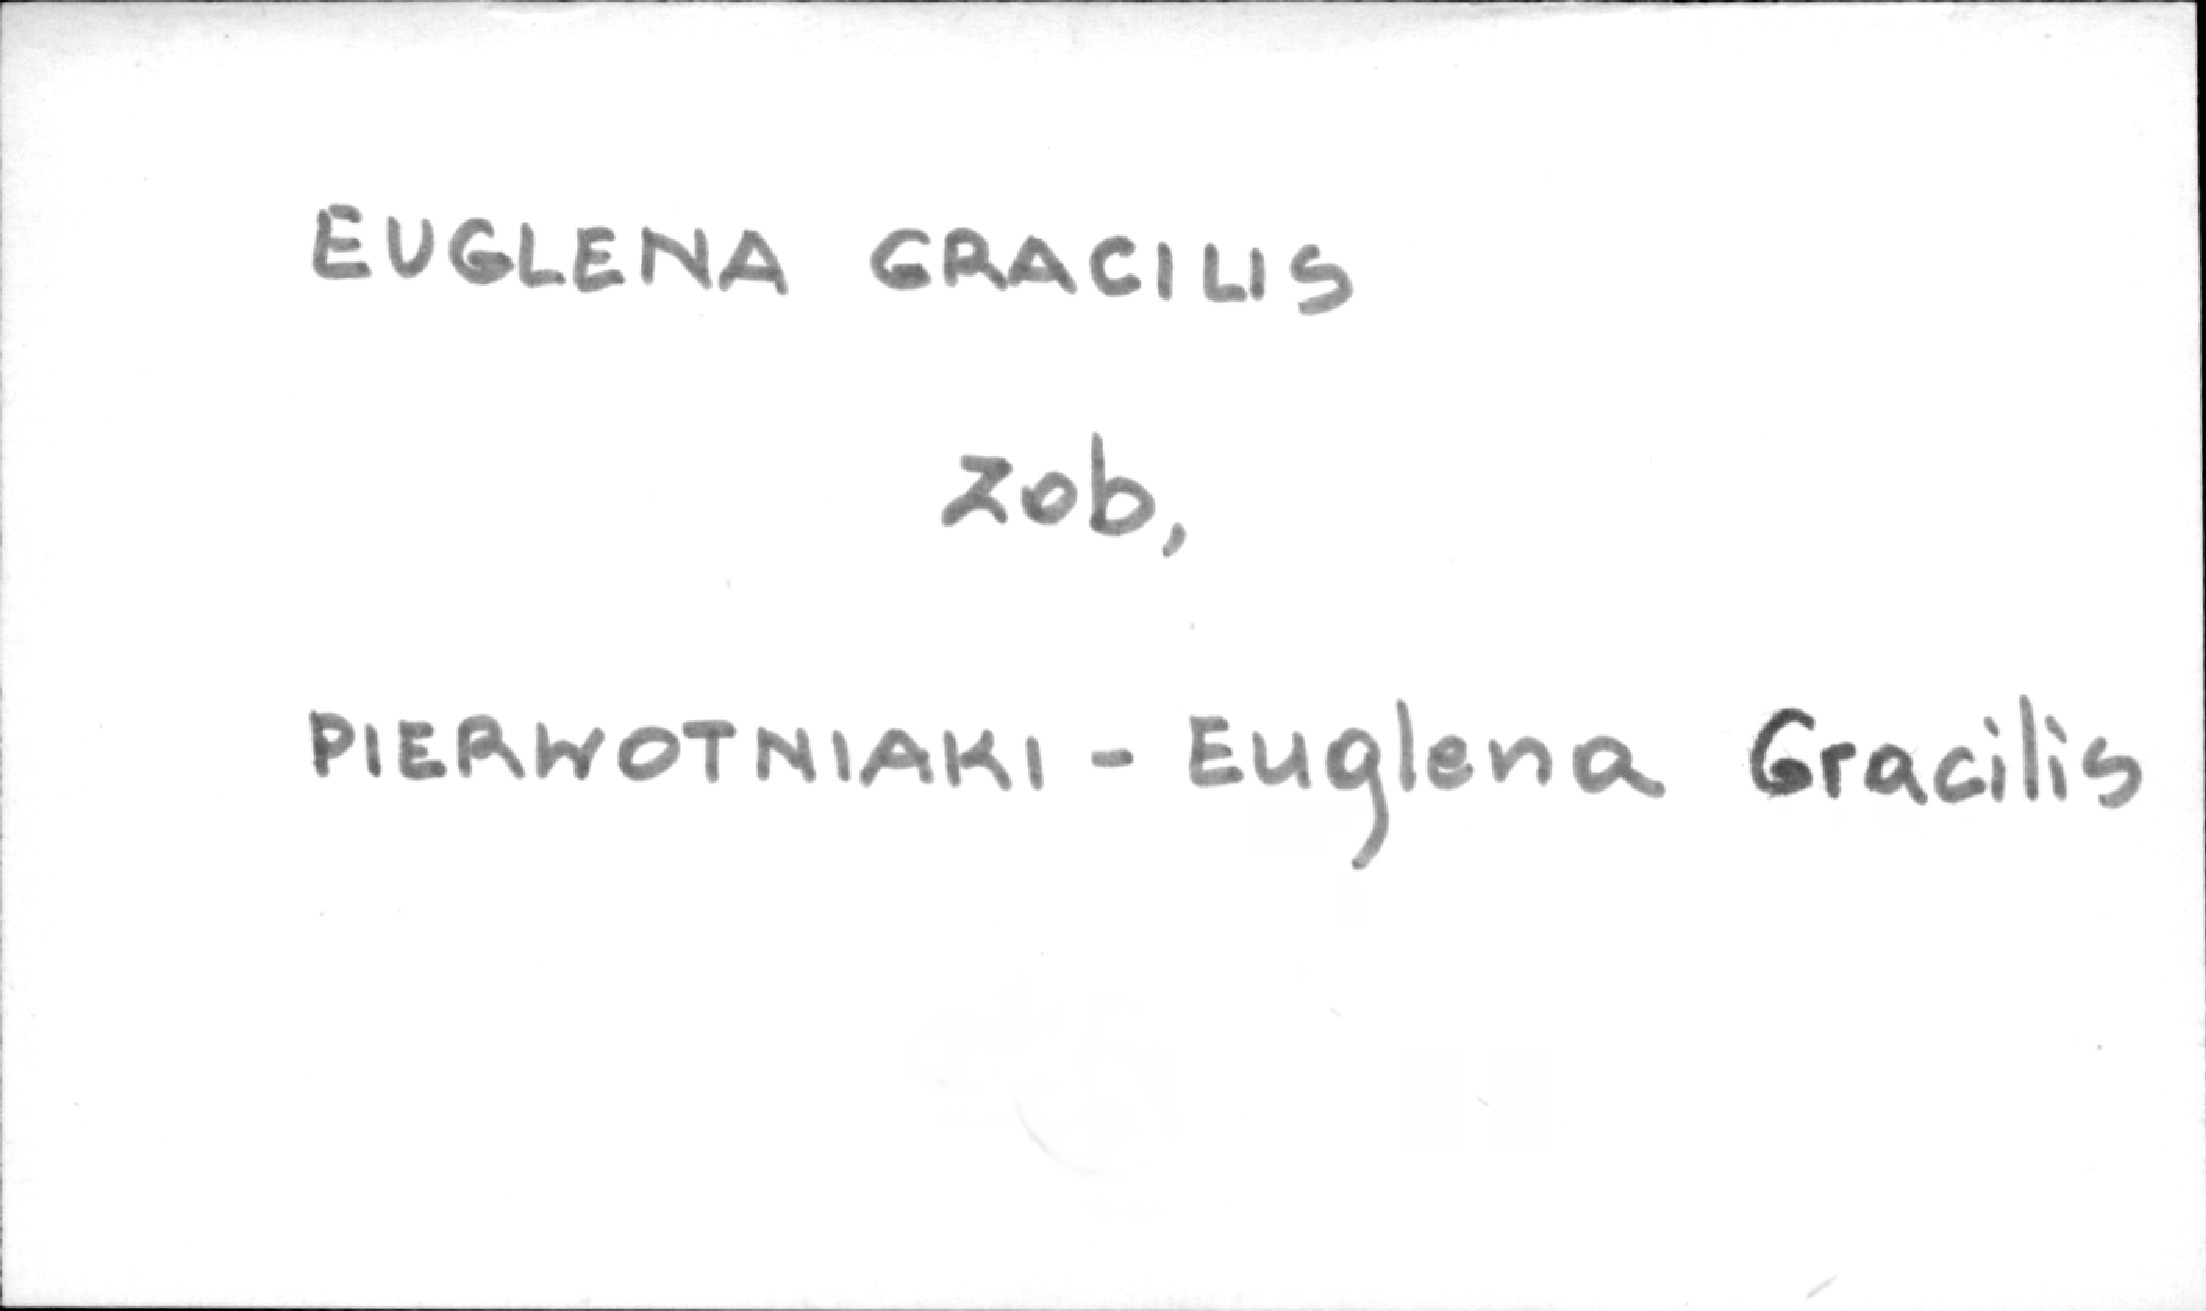 EUGLENA GRACILIS
zob,
PIERWOTNIAKI - Euglena Gracilis